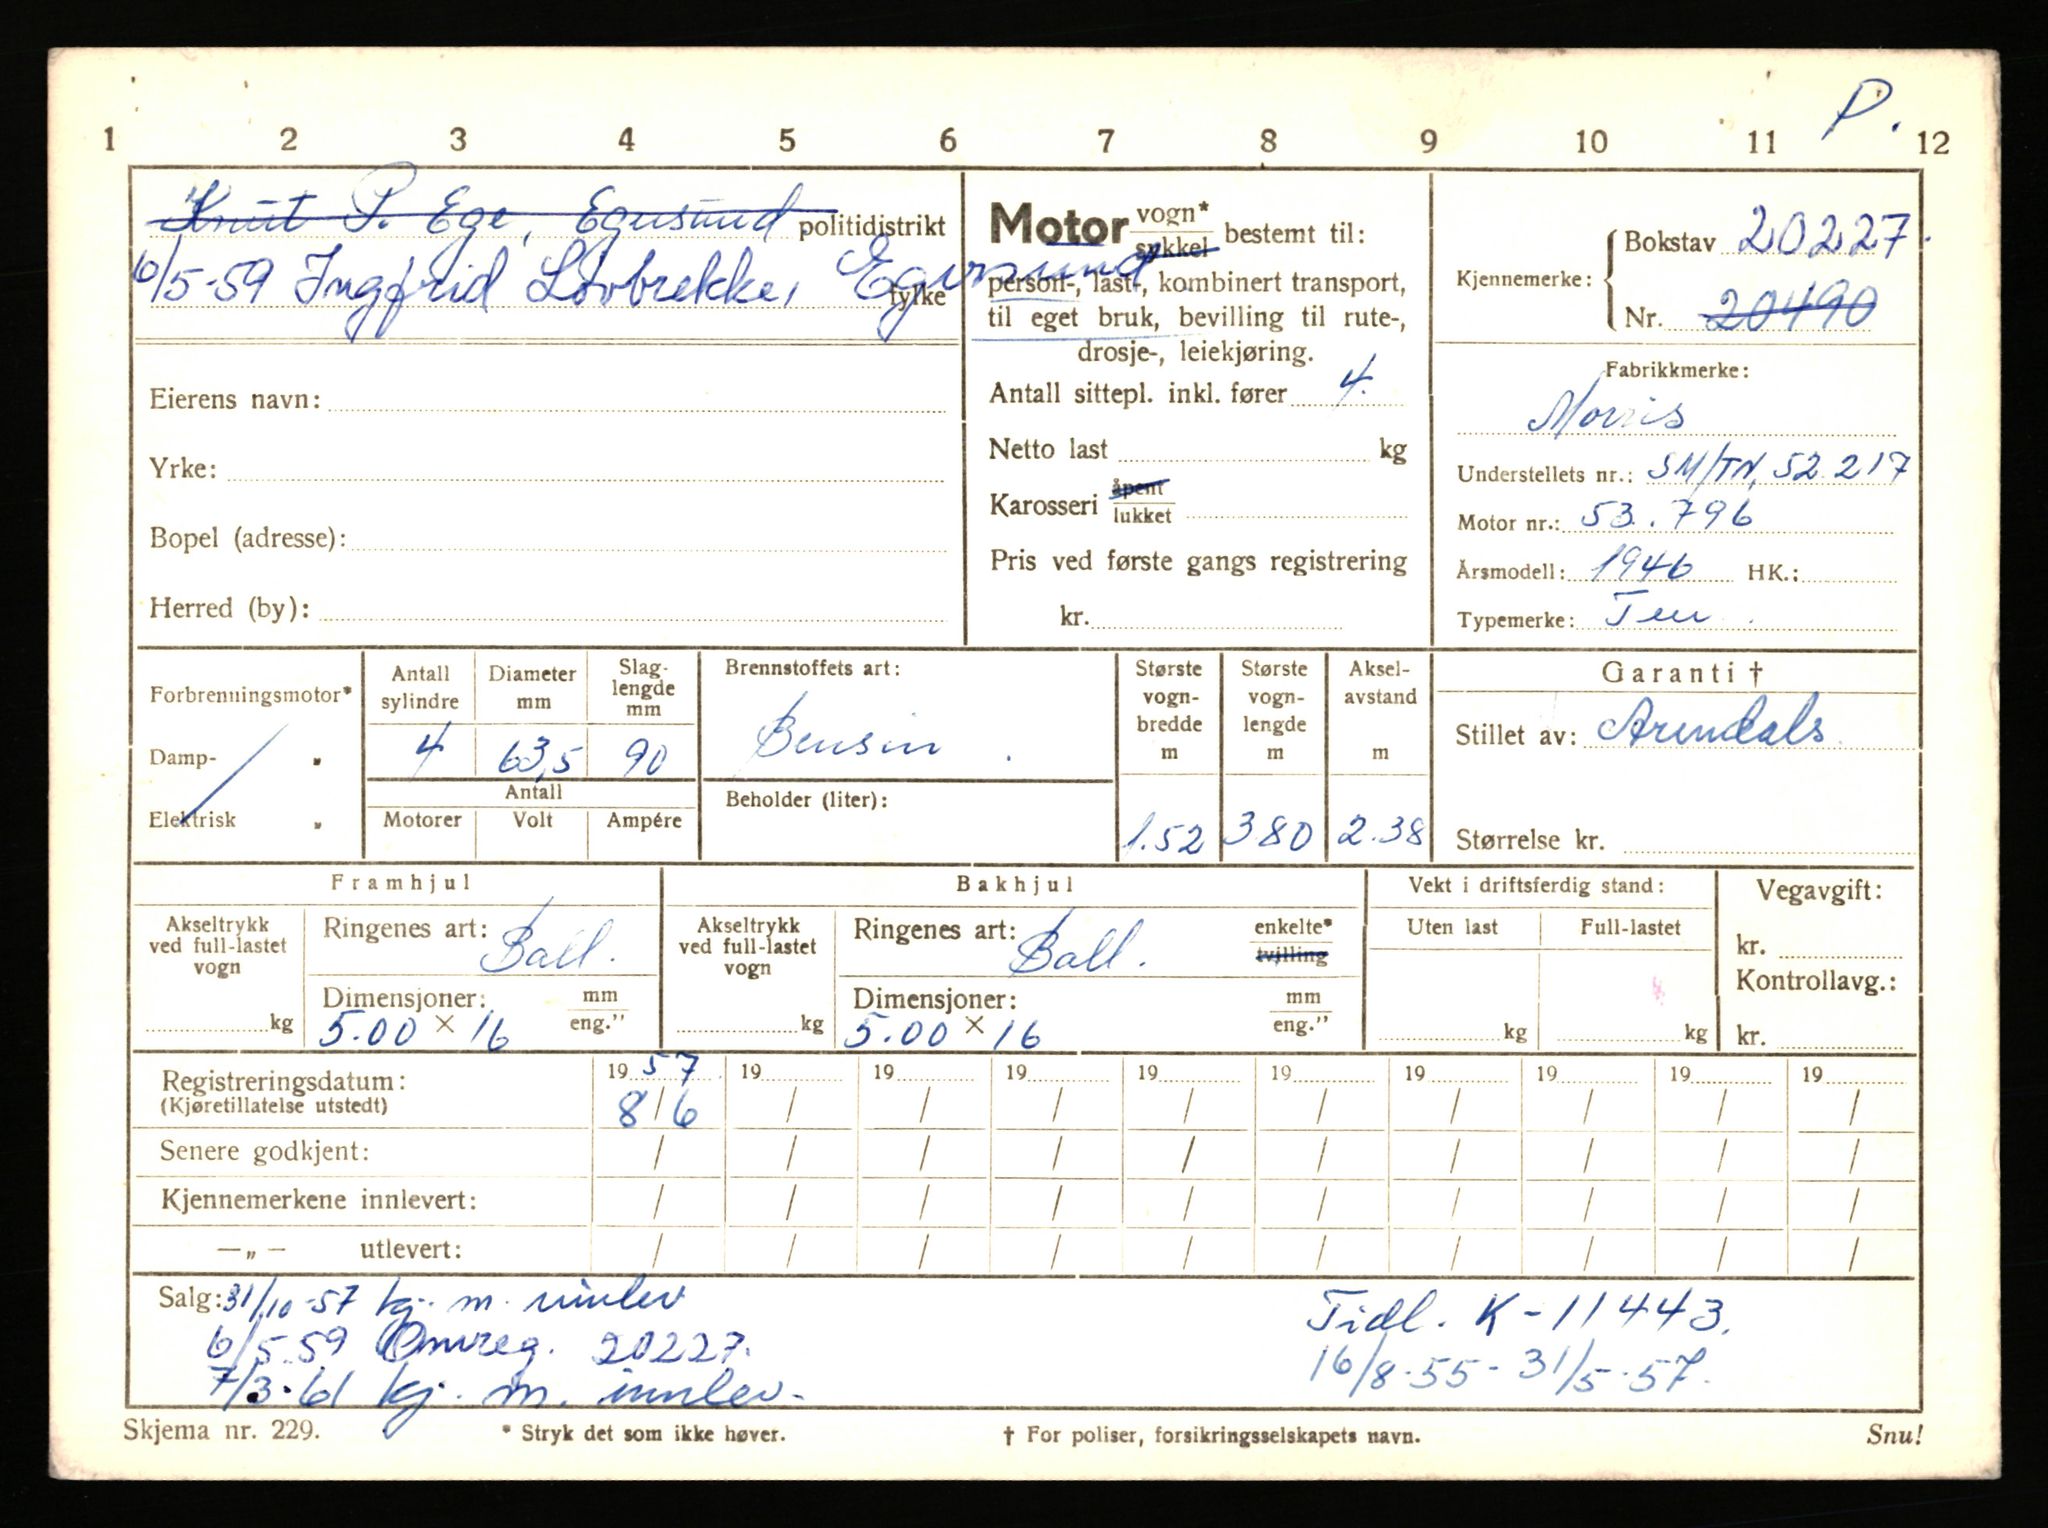 P.
1 2 3 4 5 6 7 8 9 10 11 12
Knut P. Ege, Egersund politidistrikt
6/5-59 Ingfrid Løvbrekke, Egersund fylke
Eierens navn:
Yrke:
Bopel (adresse):
Herred (by):
Motor vogn* sykkel bestemt til:
person-, last-, kombinert transport,
til eget bruk, bevilling til rute-,
drosje-, leiekjøring.
Antall sittepl. inkl. fører 4.
Netto last kg
Karosseri åpent lukket
Pris ved første gangs registrering
kr.
Kjennemerke: Bokstav 20227.
Nr. 20490
Fabrikkmerke:
Morris
Understellets nr.: SM/TN. 52.217
Motor nr.: 53.796
Årsmodell: 1946 HK.:
Typemerke: Ten.
Forbrenningsmotor*
Damp- „
Elektrisk „
Antall sylindre Diameter mm Slag-lengde mm
4 63,5 90
Antall
Motorer Volt Ampére
Brennstoffets art:
Bensin.
Beholder (liter):
Største vogn-bredde m Største vogn-lengde m Aksel-avstand m
1.52 380 2.38
Garanti †
Stillet av: Arendals
Størrelse kr.
Framhjul
Akseltrykk ved full-lastet vogn
kg
Ringenes art: Ball.
Dimensjoner: mm eng."
5.00 × 16
Bakhjul
Akseltrykk ved full-lastet vogn
kg
Ringenes art: Ball. enkelte* tvilling
Dimensjoner: mm eng."
5.00 × 16
Vekt i driftsferdig stand:
Uten last Full-lastet
kg kg
Vegavgift:
kr.
Kontrollavg.:
kr.
Registreringsdatum: 19 57 19 19 19 19 19 19 19 19 19
(Kjøretillatelse utstedt) 8/6 / / / / / / / / /
Senere godkjent: / / / / / / / / / /
Kjennemerkene innlevert: / / / / / / / / / /
—„— utlevert: / / / / / / / / / /
Salg: 31/10-57 kj. m. innlev
6/5.59 Omreg. 20227.
7/3.61 kj. m. innlev.
Tidl. K-11443.
16/8.55-31/5.57.
Skjema nr. 229. * Stryk det som ikke høver. † For poliser, forsikringsselskapets navn. Snu!